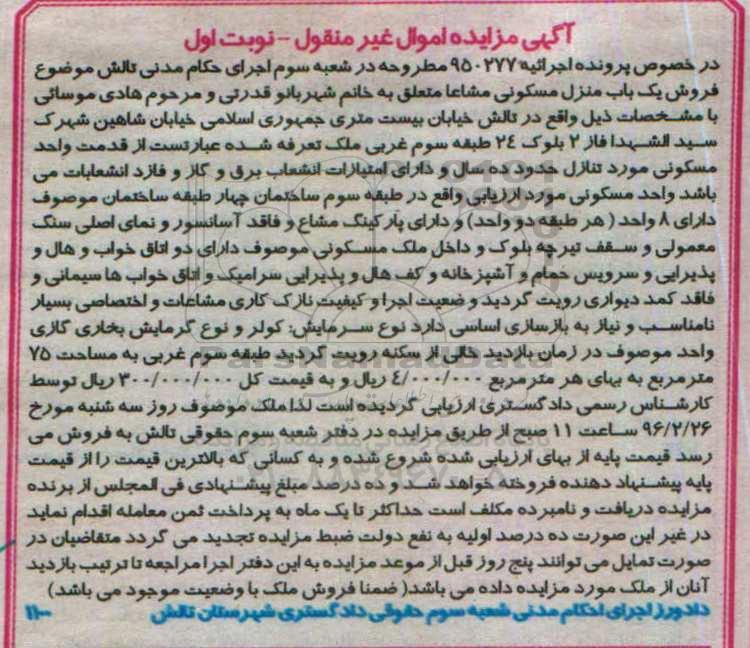 آگهی مزایده اموال غیر منقول - نوبت اول
در خصوص پرونده اجرائیه ۹۵۰۲۷۷ مطروحه در شعبه سوم اجرای حکام مدنی تالش موضوع
فروش یک باب منزل مسکونی مشاعا متعلق به خانم شهربانو قدرتی و مرحوم هادی موسائی
با مشخصات ذیل واقع در تالش خیابان بیست متری جمهوری اسلامی خیابان شاهین شهرک
سید الشهدا فاز ۲ بلوک ۲۴ طبقه سوم غربی ملک تعرفه شده عبارتست از قدمت واحد
مسکونی مورد تنازل حدود ده سال و دارای امتیازات انشعاب برق و گاز و فاقد انشعابات می
باشد واحد مسکونی مورد ارزیابی واقع در طبقه سوم ساختمان چهار طبقه ساختمان موصوف
دارای ۸ واحد ( هر طبقه دو واحد) و دارای پارکینگ مشاع و فاقد آسانسور و نمای اصلی سنگ
معمولی و سقف تیرچه بلوک و داخل ملک مسکونی موصوف دارای دو اتاق خواب و هال و
پذیرایی و سرویس حمام و آشپزخانه و کف هال و پذیرایی سرامیک و اتاق خواب ها سیمانی و
فاقد کمد دیواری رویت گردید و ضعیت اجرا و کیفیت نازک کاری مشاعات و اختصاصی بسیار
نامناسب و نیاز به بازسازی اساسی دارد نوع سرمایش: کولر و نوع گرمایش بخاری گازی
واحد موصوف در زمان بازدید خالی از سکنه رویت گردید طبقه سوم غربی به مساحت ۷۵
مترمربع به بهای هر متر مربع ۴/۰۰۰/۰۰۰ ریال و به قیمت کل ۳۰۰/۰۰۰/۰۰۰ ریال توسط
کارشناس رسمی دادگستری ارزیابی گردیده است لذا ملک موصوف روز سه شنبه مورخ
۹۶/۲/۲۶ ساعت ۱۱ صبح از طریق مزایده در دفتر شعبه سوم حقوقی تالش به فروش می
رسد قیمت پایه از بهای ارزیابی شده شروع شده و به کسانی که بالاترین قیمت را از قیمت
پایه پیشنهاد دهنده فروخته خواهد شد و ده درصد مبلغ پیشنهادی فی المجلس از برنده
مزایده دریافت و نامبرده مکلف است حداکثر تا یک ماه به پرداخت ثمن معامله اقدام نماید
در غیر این صورت ده درصد اولیه به نفع دولت ضبط مزایده تجدید می گردد متقاضیان در
صورت تمایل می توانند پنج روز قبل از موعد مزایده به این دفتر اجرا مراجعه تا ترتیب بازدید
آنان از ملک مورد مزایده داده می باشد( ضمنا فروش ملک با وضعیت موجود می باشد)
دادورز اجرای احکام مدنی شعبه سوم حقوقی دادگستری شهرستان تالش ۱۱۰۰
ParsNamadData